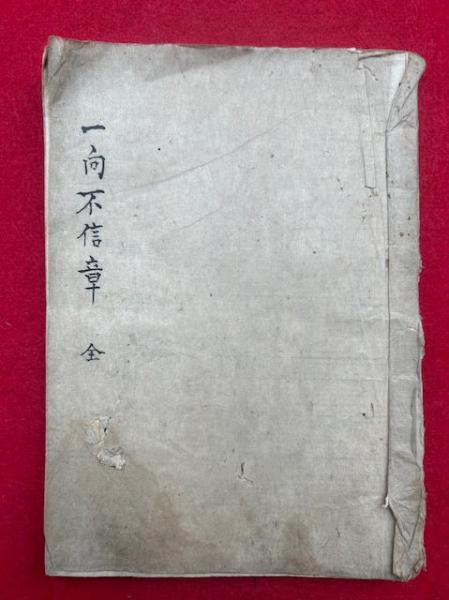 一向不信章 全